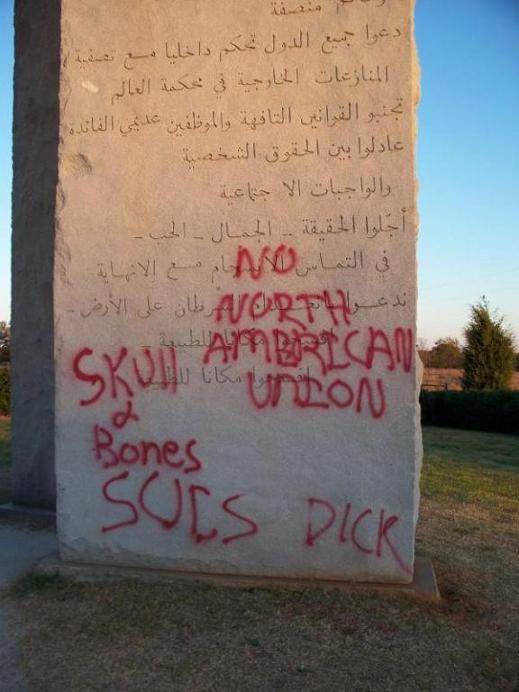 منصفة
دعوا جميع الدول تحكم داخليا مع تصفية
المنازعات الخارجية في محكمة العالم
تجنبو القوانين التافهة والموظفين عديمي الفائدة
عادلوا بين الحقوق الشخصية
والواجبات الاجتماعية
أجّلوا الحقيقة _ الجمال _ الحب _
في التماس الانسجام مع الانهاية
على الأرض _
افسحوا مكانا للطبيعة _
افسحوا مكانا للطبيعة
NO
NORTH
AMERICAN
UNION
SKUll
&
Bones
SUCS DICK